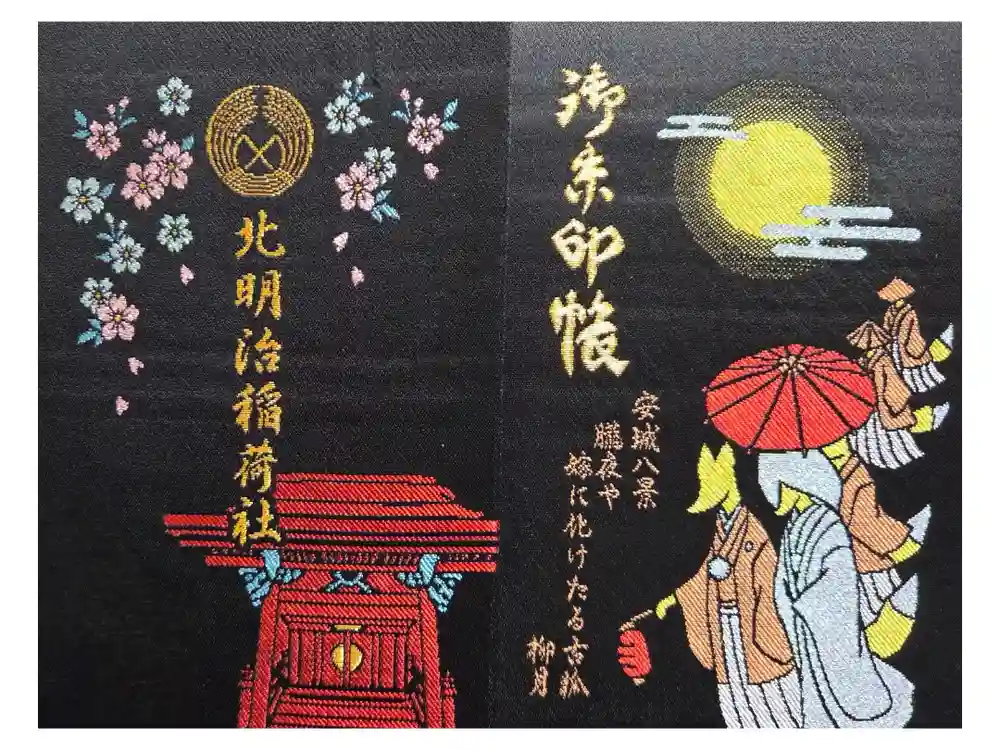 御朱印帳
安城八景
朧夜や
嫁に化けたる古狐
柳月
北明治稲荷社